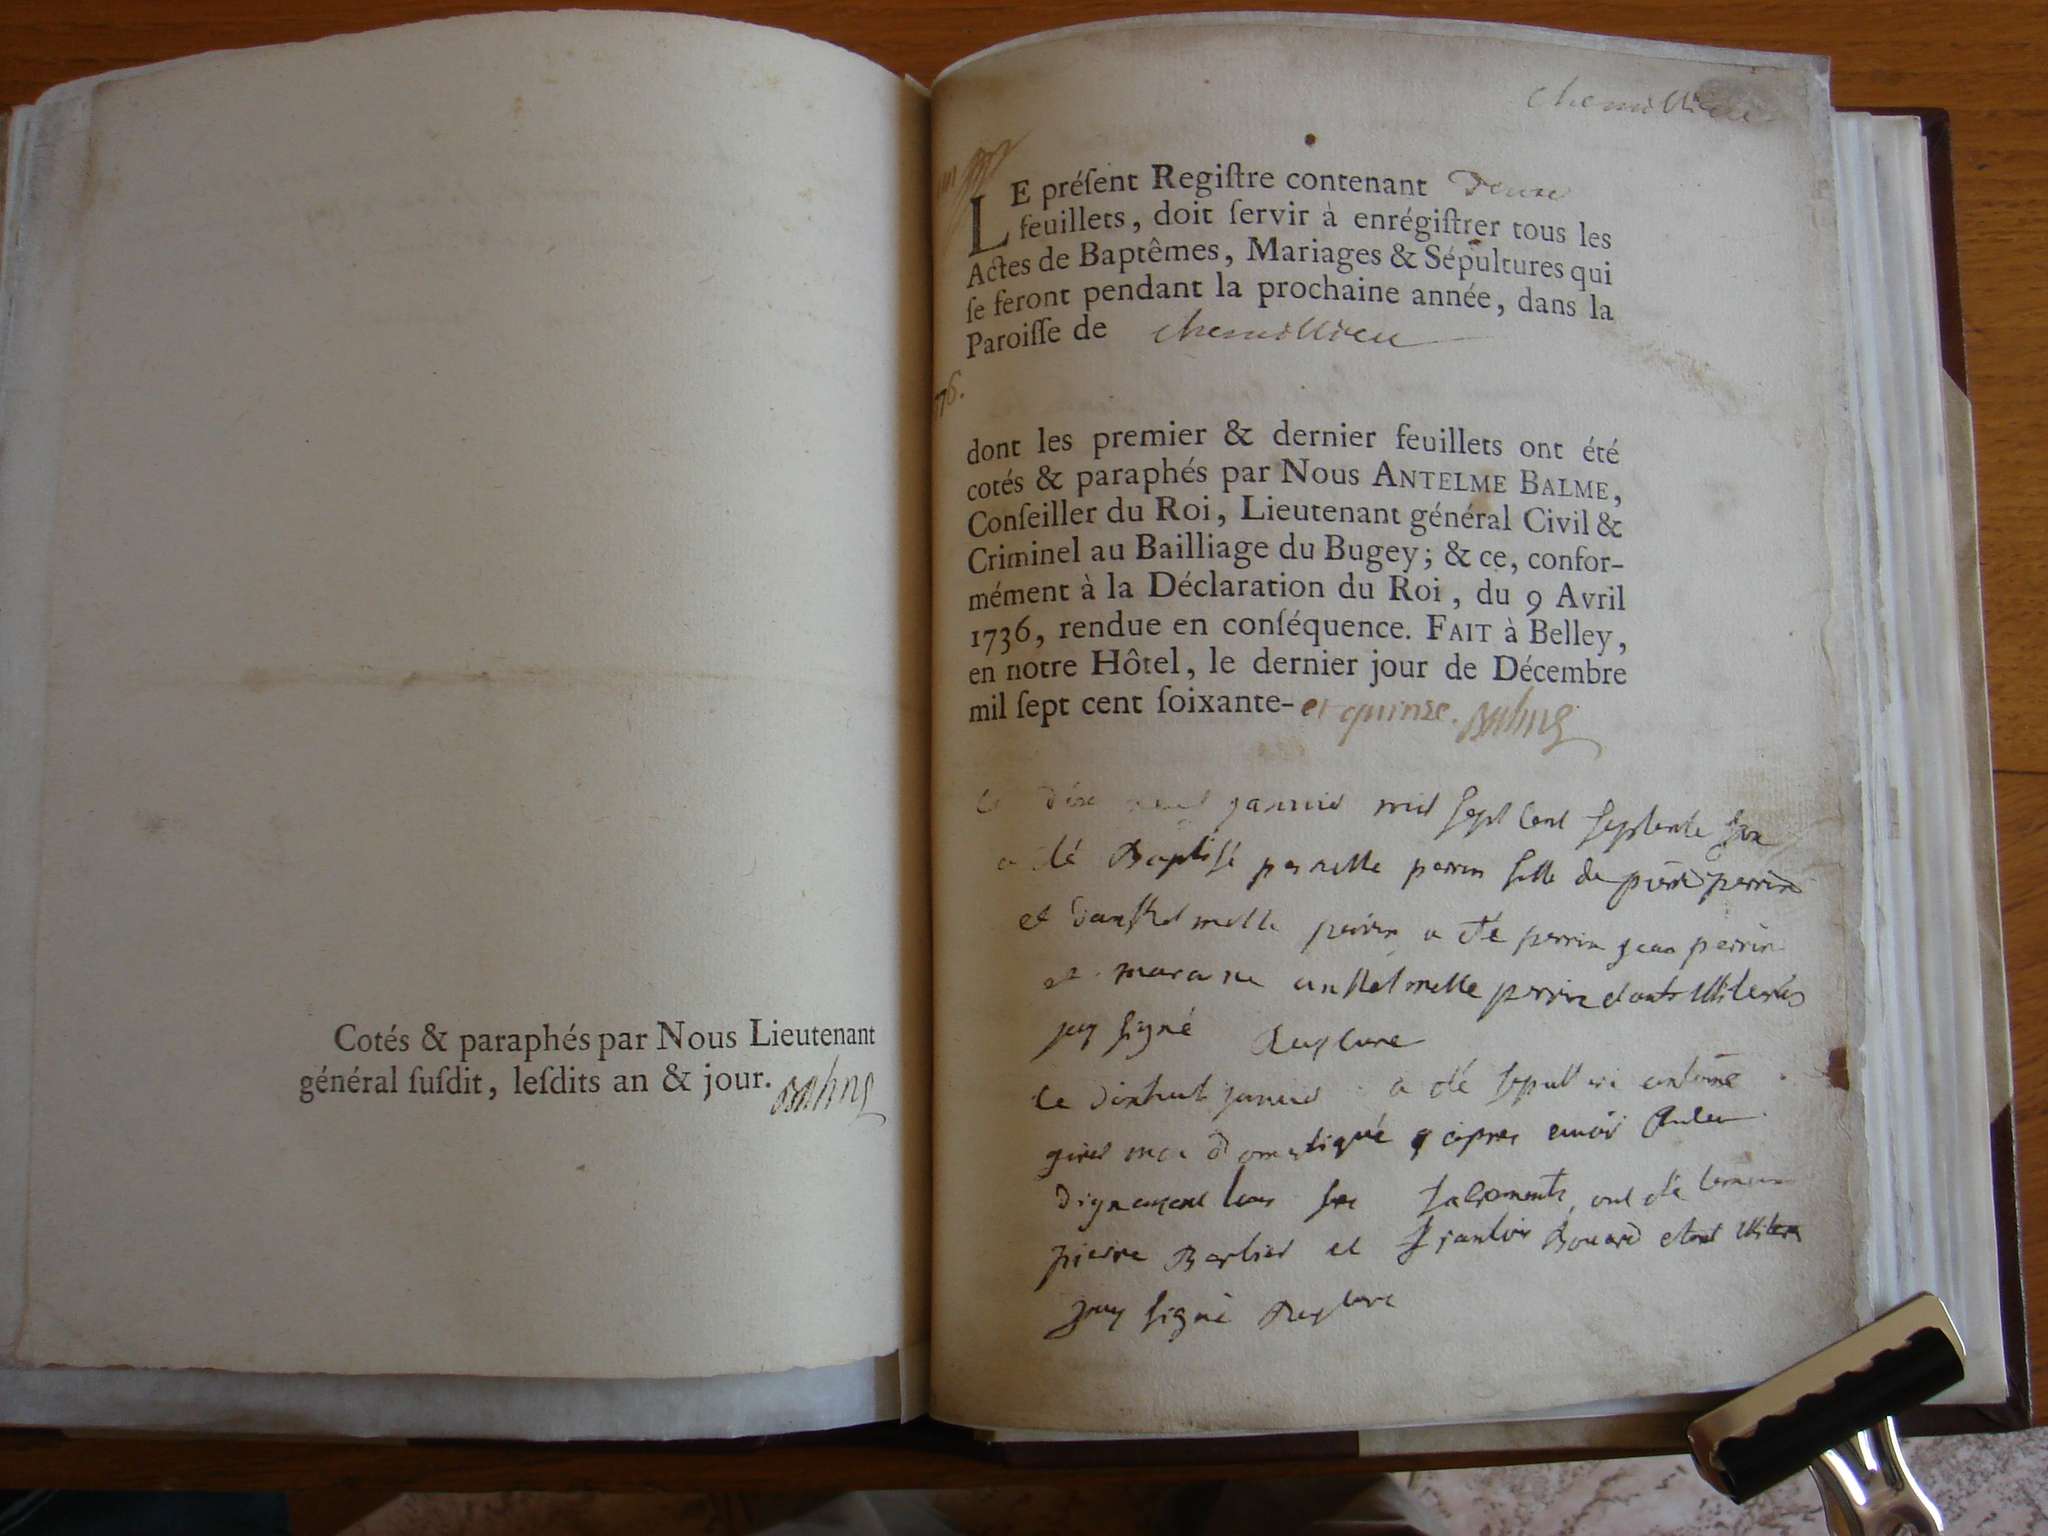 Cotés & paraphés par Nous Lieutenant
général ſuſdit, leſdits an & jour. Balme
chemillieu
LE préſent Regiſtre contenant Deux
feuillets, doit ſervir à enrégiſtrer tous les
Actes de Baptêmes, Mariages & Sépultures qui
ſe feront pendant la prochaine année, dans la
Paroiſſe de chemillieu
dont les premier & dernier feuillets ont été
cotés & paraphés par Nous ANTELME BALME,
Conſeiller du Roi, Lieutenant général Civil &
Criminel au Bailliage du Bugey; & ce, confor-
mément à la Déclaration du Roi, du 9 Avril
1736, rendue en conſéquence. FAIT à Belley,
en notre Hôtel, le dernier jour de Décembre
mil ſept cent ſoixante- et quinze. Balme
le dix janvie mil sept cent septente six
a été Baptisé pernette perrin fille de pierre perrin
et perrin a été perrin jean perrin
et marene anthelmette perrin
jay signé
le dixhuit janvie a été antoine
mon apres avoir
dignement tous ses sacrements, ont été
pierre Barbier et
jay signé